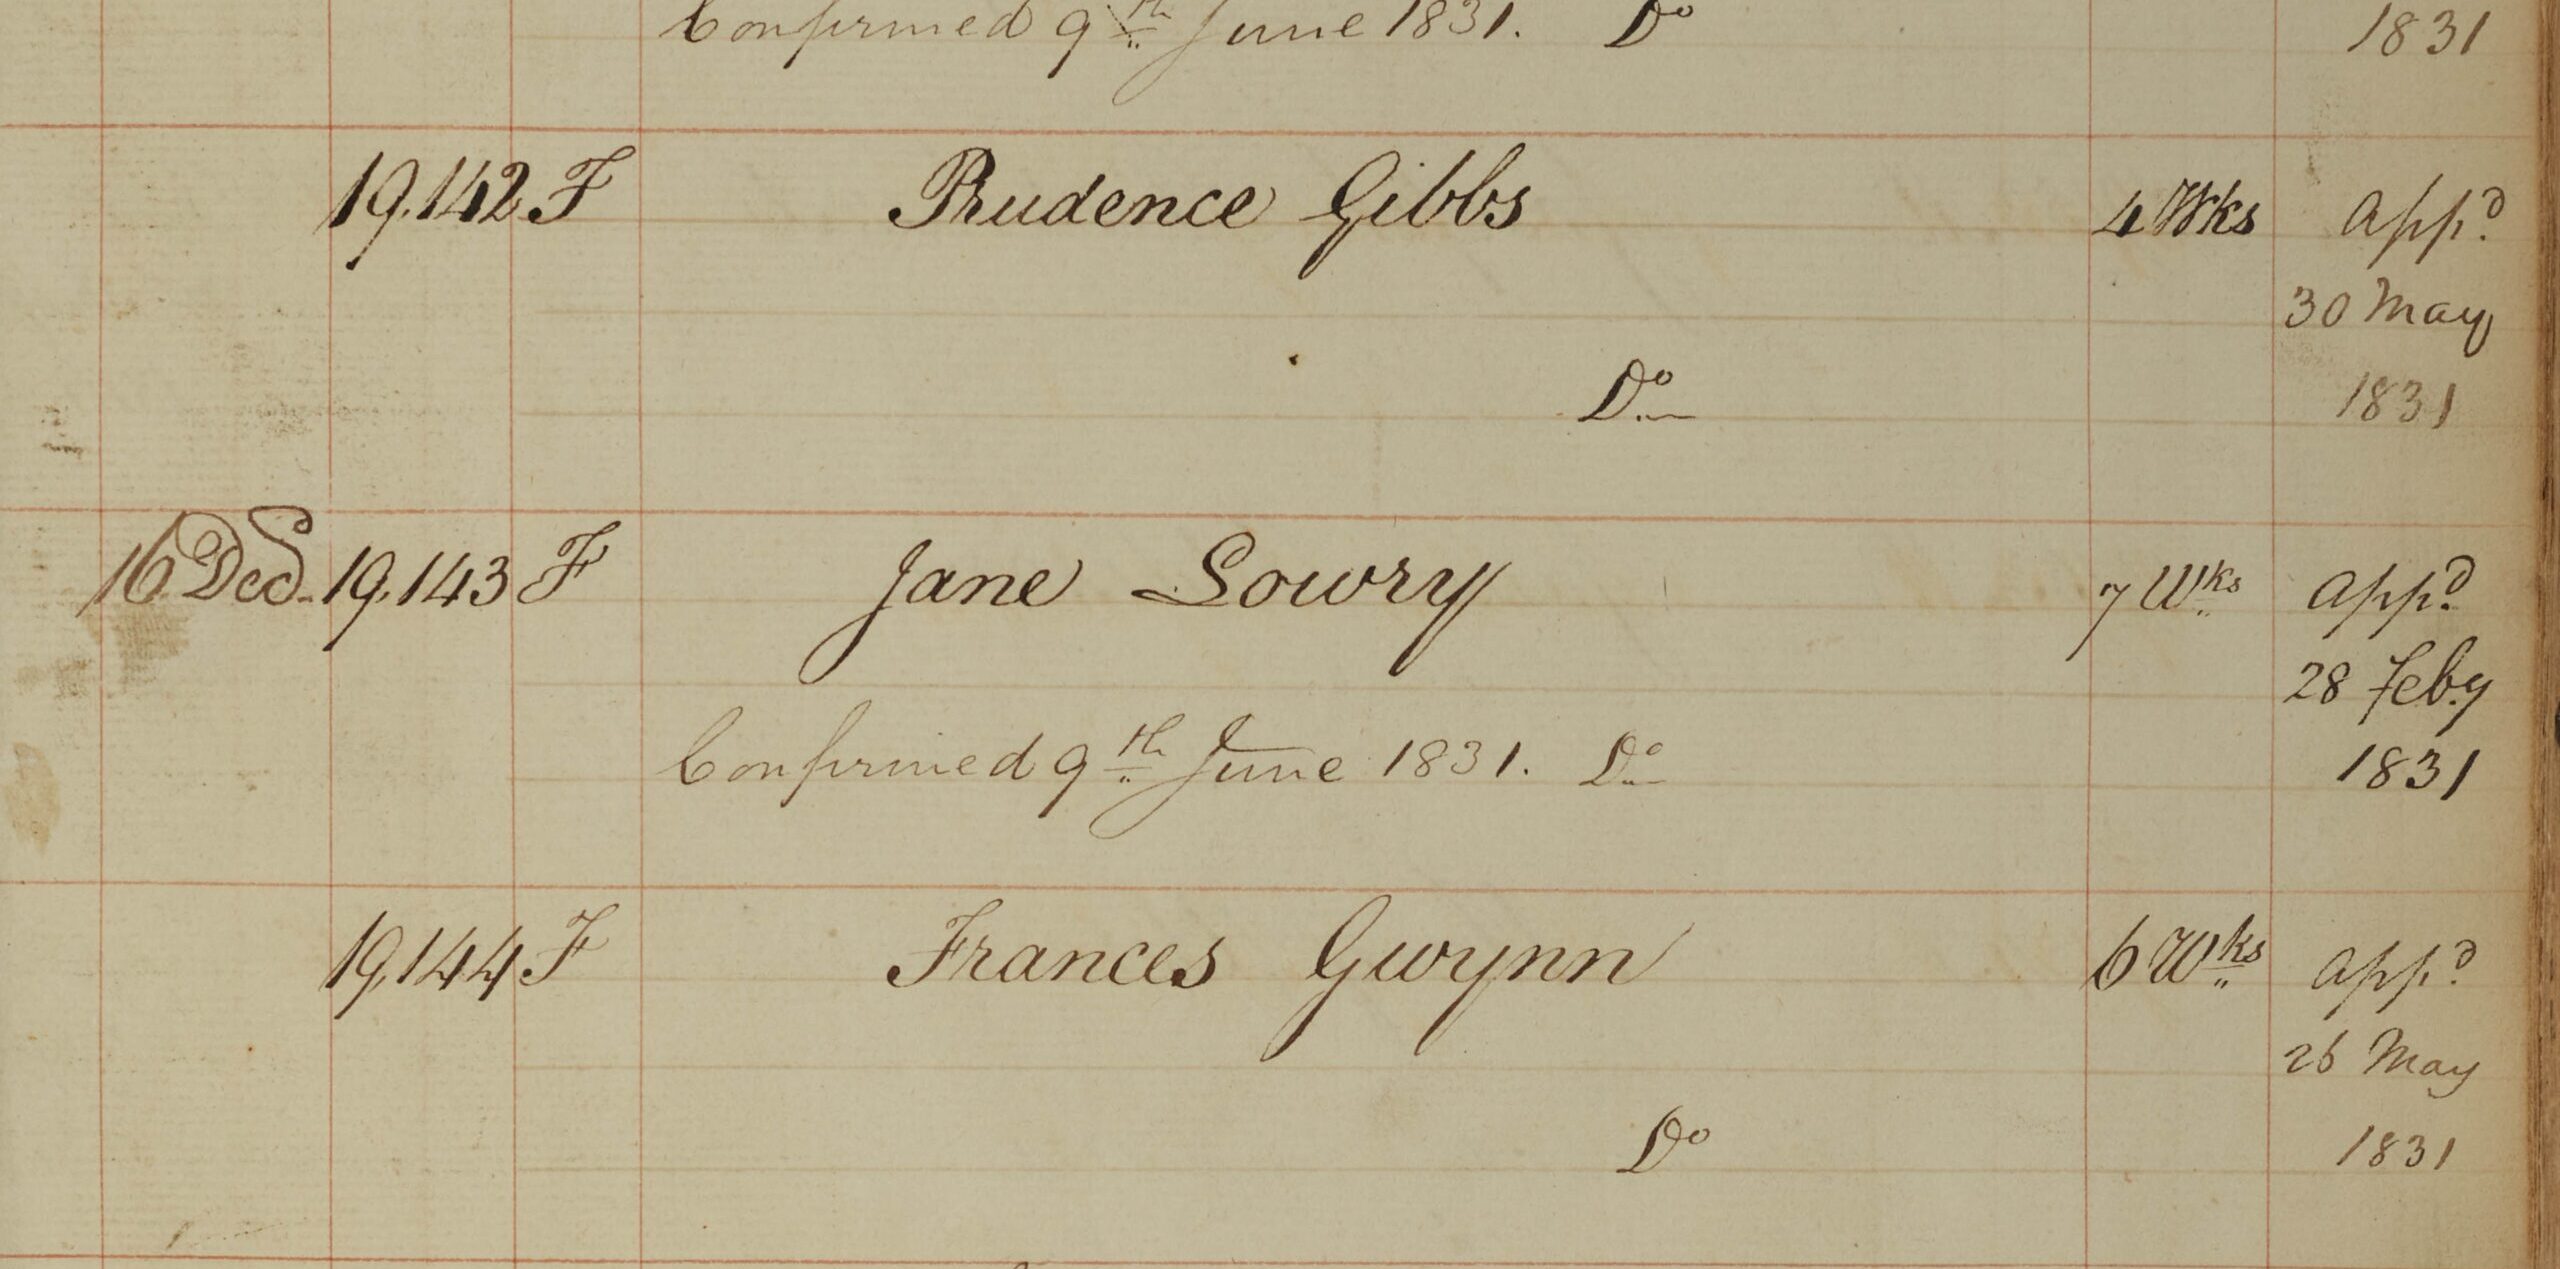 Confirmed 9th June 1831. Do 1831
19,142 F Prudence Gibbs 4 Wks Appd
30 May
Do 1831
16 Decr 19,143 F Jane Lowry 7 Wks Appd
28 Feby
Confirmed 9th June 1831. Do 1831
19,144 F Frances Gwynn 6 Wks Appd
26 May
Do 1831